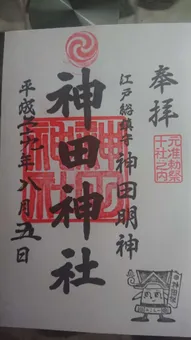 奉拝
元准勅祭
十社之内
江戸総鎮守 神田明神
神田神社
平成二九年八月五日